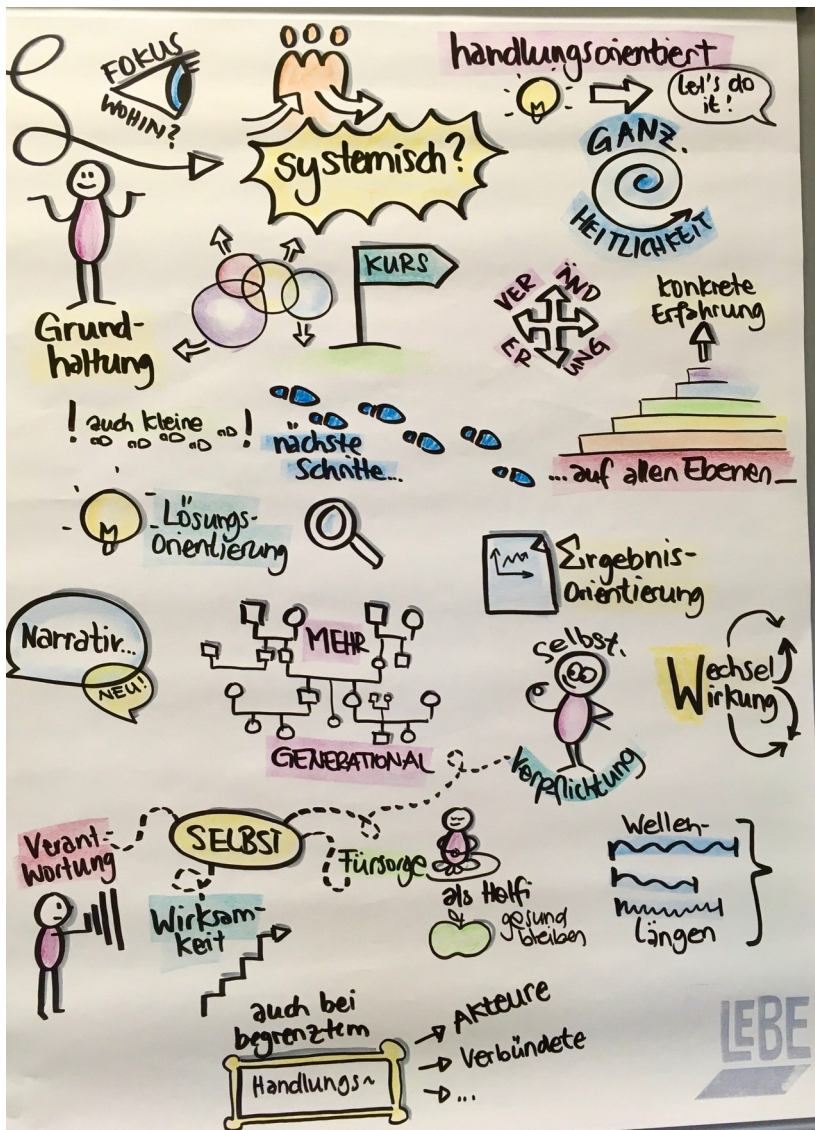 FOKUS
WOHIN?
handlungsorientiert
Let's do
it!
systemisch?
GANZ.
HEITLICHKEIT
KURS
Grund-
haltung
VER ÄND
ER UNG
konkrete
Erfahrung
! auch kleine !
nächste
Schritte...
...auf allen Ebenen
Lösungs-
orientierung
Ergebnis-
orientierung
Narrativ...
NEU!
MEHR
GENERATIONAL
Selbst.
Verpflichtung
Wechsel
Wirkung
SELBST
Verant-
wortung
Wirksam-
keit
Fürsorge
als Helfi
gesund
bleiben
Wellen-
längen
auch bei
begrenztem
Handlungs~
Akteure
Verbündete
...
LEBE